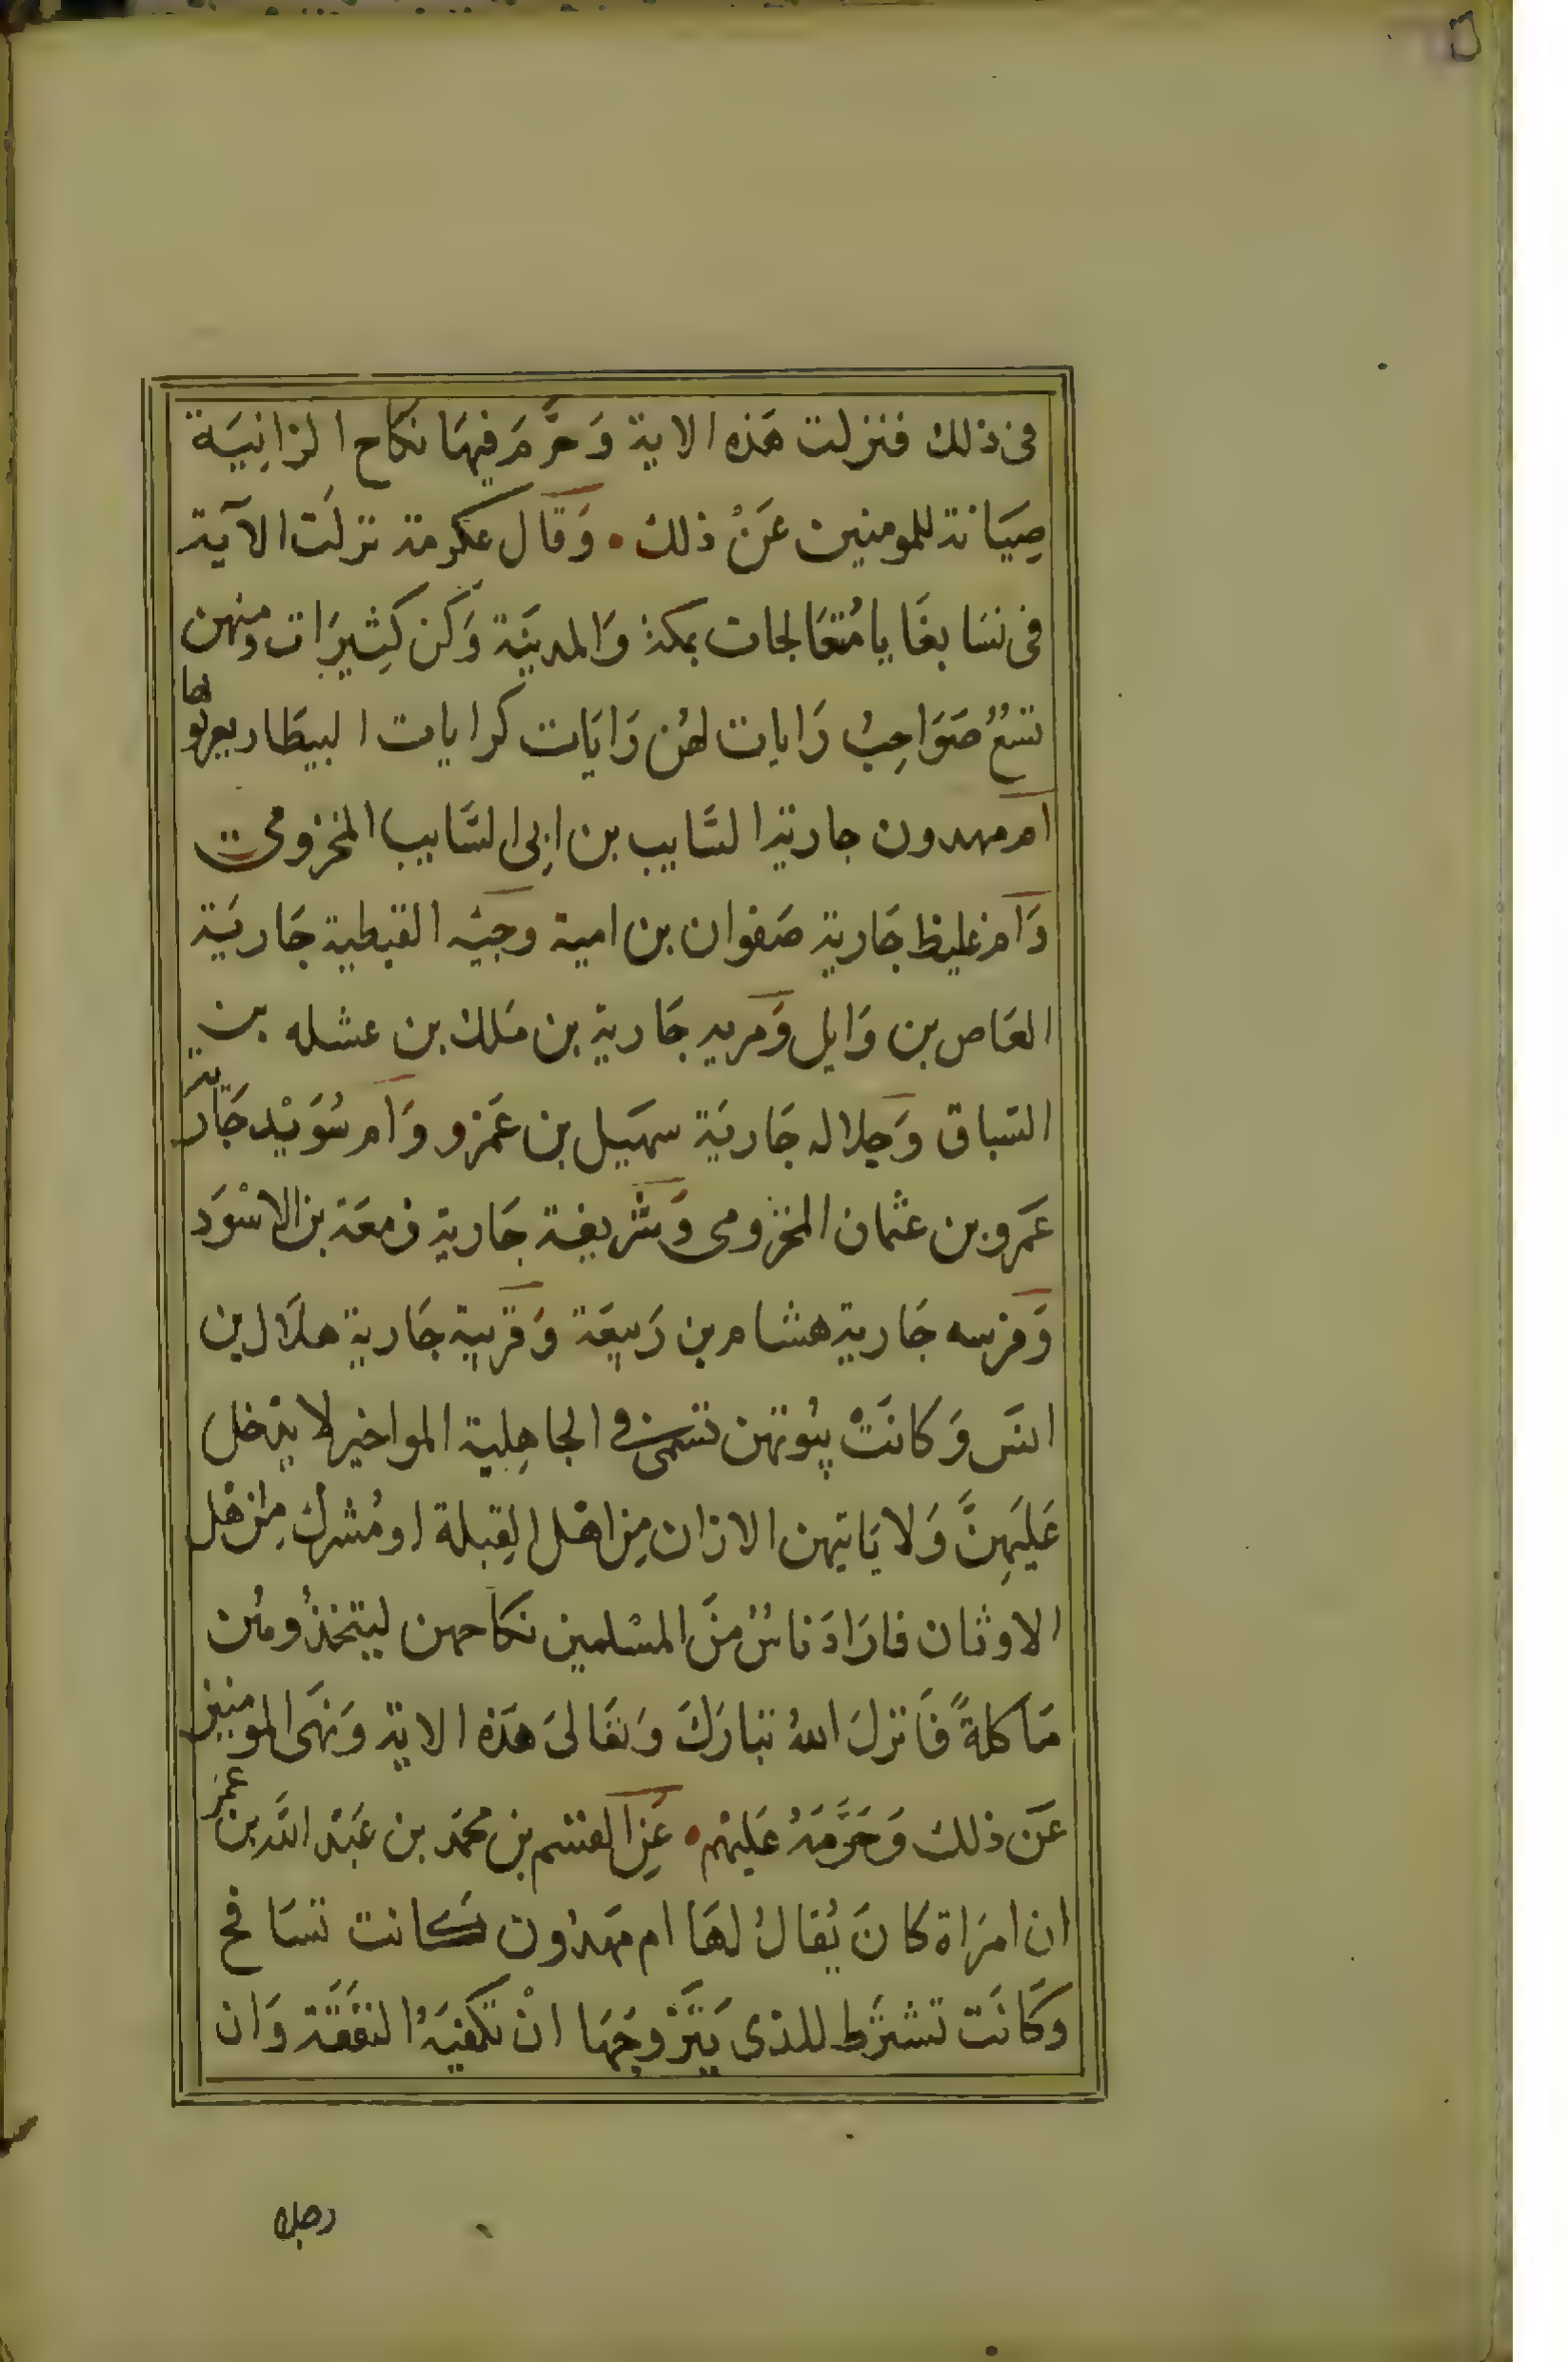 فى ذلك فنزلت هَذه الاية وَحَرَّمَ فيهَا نكَاح الزانِيَة
صِيَانة للمومنين عَنْ ذلك • وَقَال عكرمة نزلَت الآية
فى نسَا بغَايا مُتعَالجات بمكة وَالمدينَة وَكن كثِيرَات ومنهن
تسعُ صَوَاحِبُ رَايات لهُن رَايَات كرايات البيطَار يعرفونها
ام مهدون جارية السَّايب بن ابِى السَّايب المخزومى
وَام غليظ جَارية صَفوان بن امية وحيه القبطية جَاريَة
العَاص بن وَايل وَمريه جَارية بن مَلك بن عشله بن
السباق وَجلاله جَاريَة سهَيل بن عَمرو وَام سُوَيْد جَارية
عَمرو بن عثمان المخزومى وَشريفة جَارية زمعَة بن الاسْوَد
وَفرسه جَارية هشام بن رَبيعَة وَقريبة جَارية هلَال بن
انسَ وَكانَتْ بيُوتهن تسمى فى الجاهِلية المواخير لا يدخل
عَليَهِنَّ وَلا يَاتيهن الا زان مِن اهَل القِبلة او مُشرك مِن اهَل
الاوثان فارَادَ ناسٌ منَ المسْلمين نكاحهن ليتخذُوهُن
مَاكلةً فَانزلَ اللهُ تبارَكَ وَتعَالىَ هَذه الاية وَنهَى المومنين
عَن ذلك وَحَرَّمَهُ عَليْهم • عَنِ القسم بن محمَد بن عَبْد الله بن عمر
ان امرَاة كانَ يُقالُ لهَا ام مهَدُون كانت تسَافح
وَكَانَت تشترَط للذى يَتَزَوجهَا انْ تكفيَهُ النفَقَة وَان
رجلا